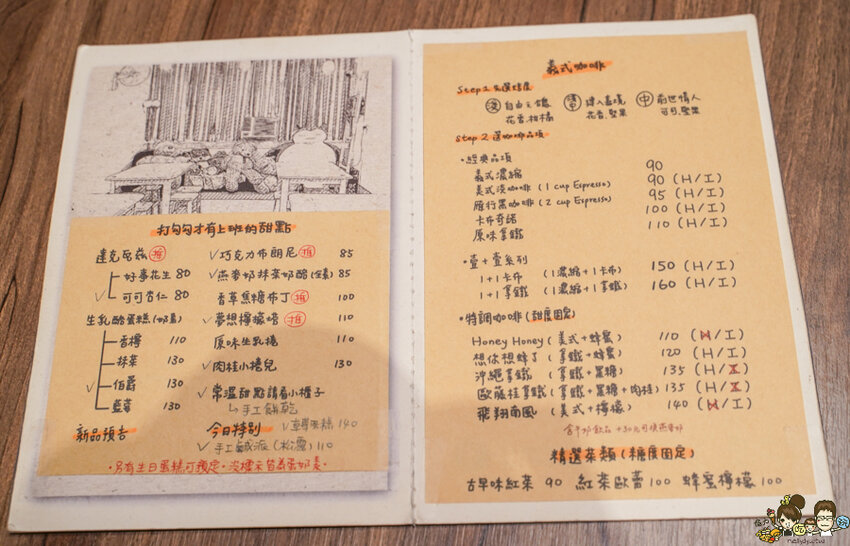 打勾勾才有上班的甜點
達克瓦茲 推
好事花生 80
✓ 可可杏仁 80
生乳酪蛋糕(奶素)
香檸 110
抹茶 130
✓ 伯爵 130
藍莓 130
新品預告
✓ 巧克力布朗尼 推 85
✓ 燕麥奶抹茶奶酪(全素) 85
香草焦糖布丁 推 100
✓ 夢想檸檬塔 推 110
原味生乳捲 110
✓ 肉桂小捲兒 130
✓ 常溫甜點請看小櫃子
手工餅乾
今日特別
140
✓ 手工鹹派 110
義式咖啡
Step 1 先選烘度
淺 自由之鴿
花香.柑橘
淺中 漸入嘉境
花香.堅果
中 前世情人
可可.堅果
Step 2 選咖啡品項
•經典品項
義式濃縮 90
美式淡咖啡 (1 cup Espresso) 90 (H/I)
雁行黑咖啡 (2 cup Espresso) 95 (H/I)
卡布奇諾 100 (H/I)
原味拿鐵 110 (H/I)
•壹+壹系列
1+1卡布 (1濃縮+1卡布) 150 (H/I)
1+1拿鐵 (1濃縮+1拿鐵) 160 (H/I)
•特調咖啡(甜度固定)
Honey Honey (美式+蜂蜜) 110 (H/I)
想你想蜂了 (拿鐵+蜂蜜) 120 (H/I)
沖繩拿鐵 (拿鐵+黑糖) 135 (H/I)
歐薩桂拿鐵 (拿鐵+黑糖+肉桂) 135 (H/I)
飛翔南風 (美式+檸檬) 140 (H/I)
含牛奶飲品 +30元可換燕麥奶
精選茶類 (糖度固定)
古早味紅茶 90 紅茶歐蕾 100 蜂蜜檸檬 100